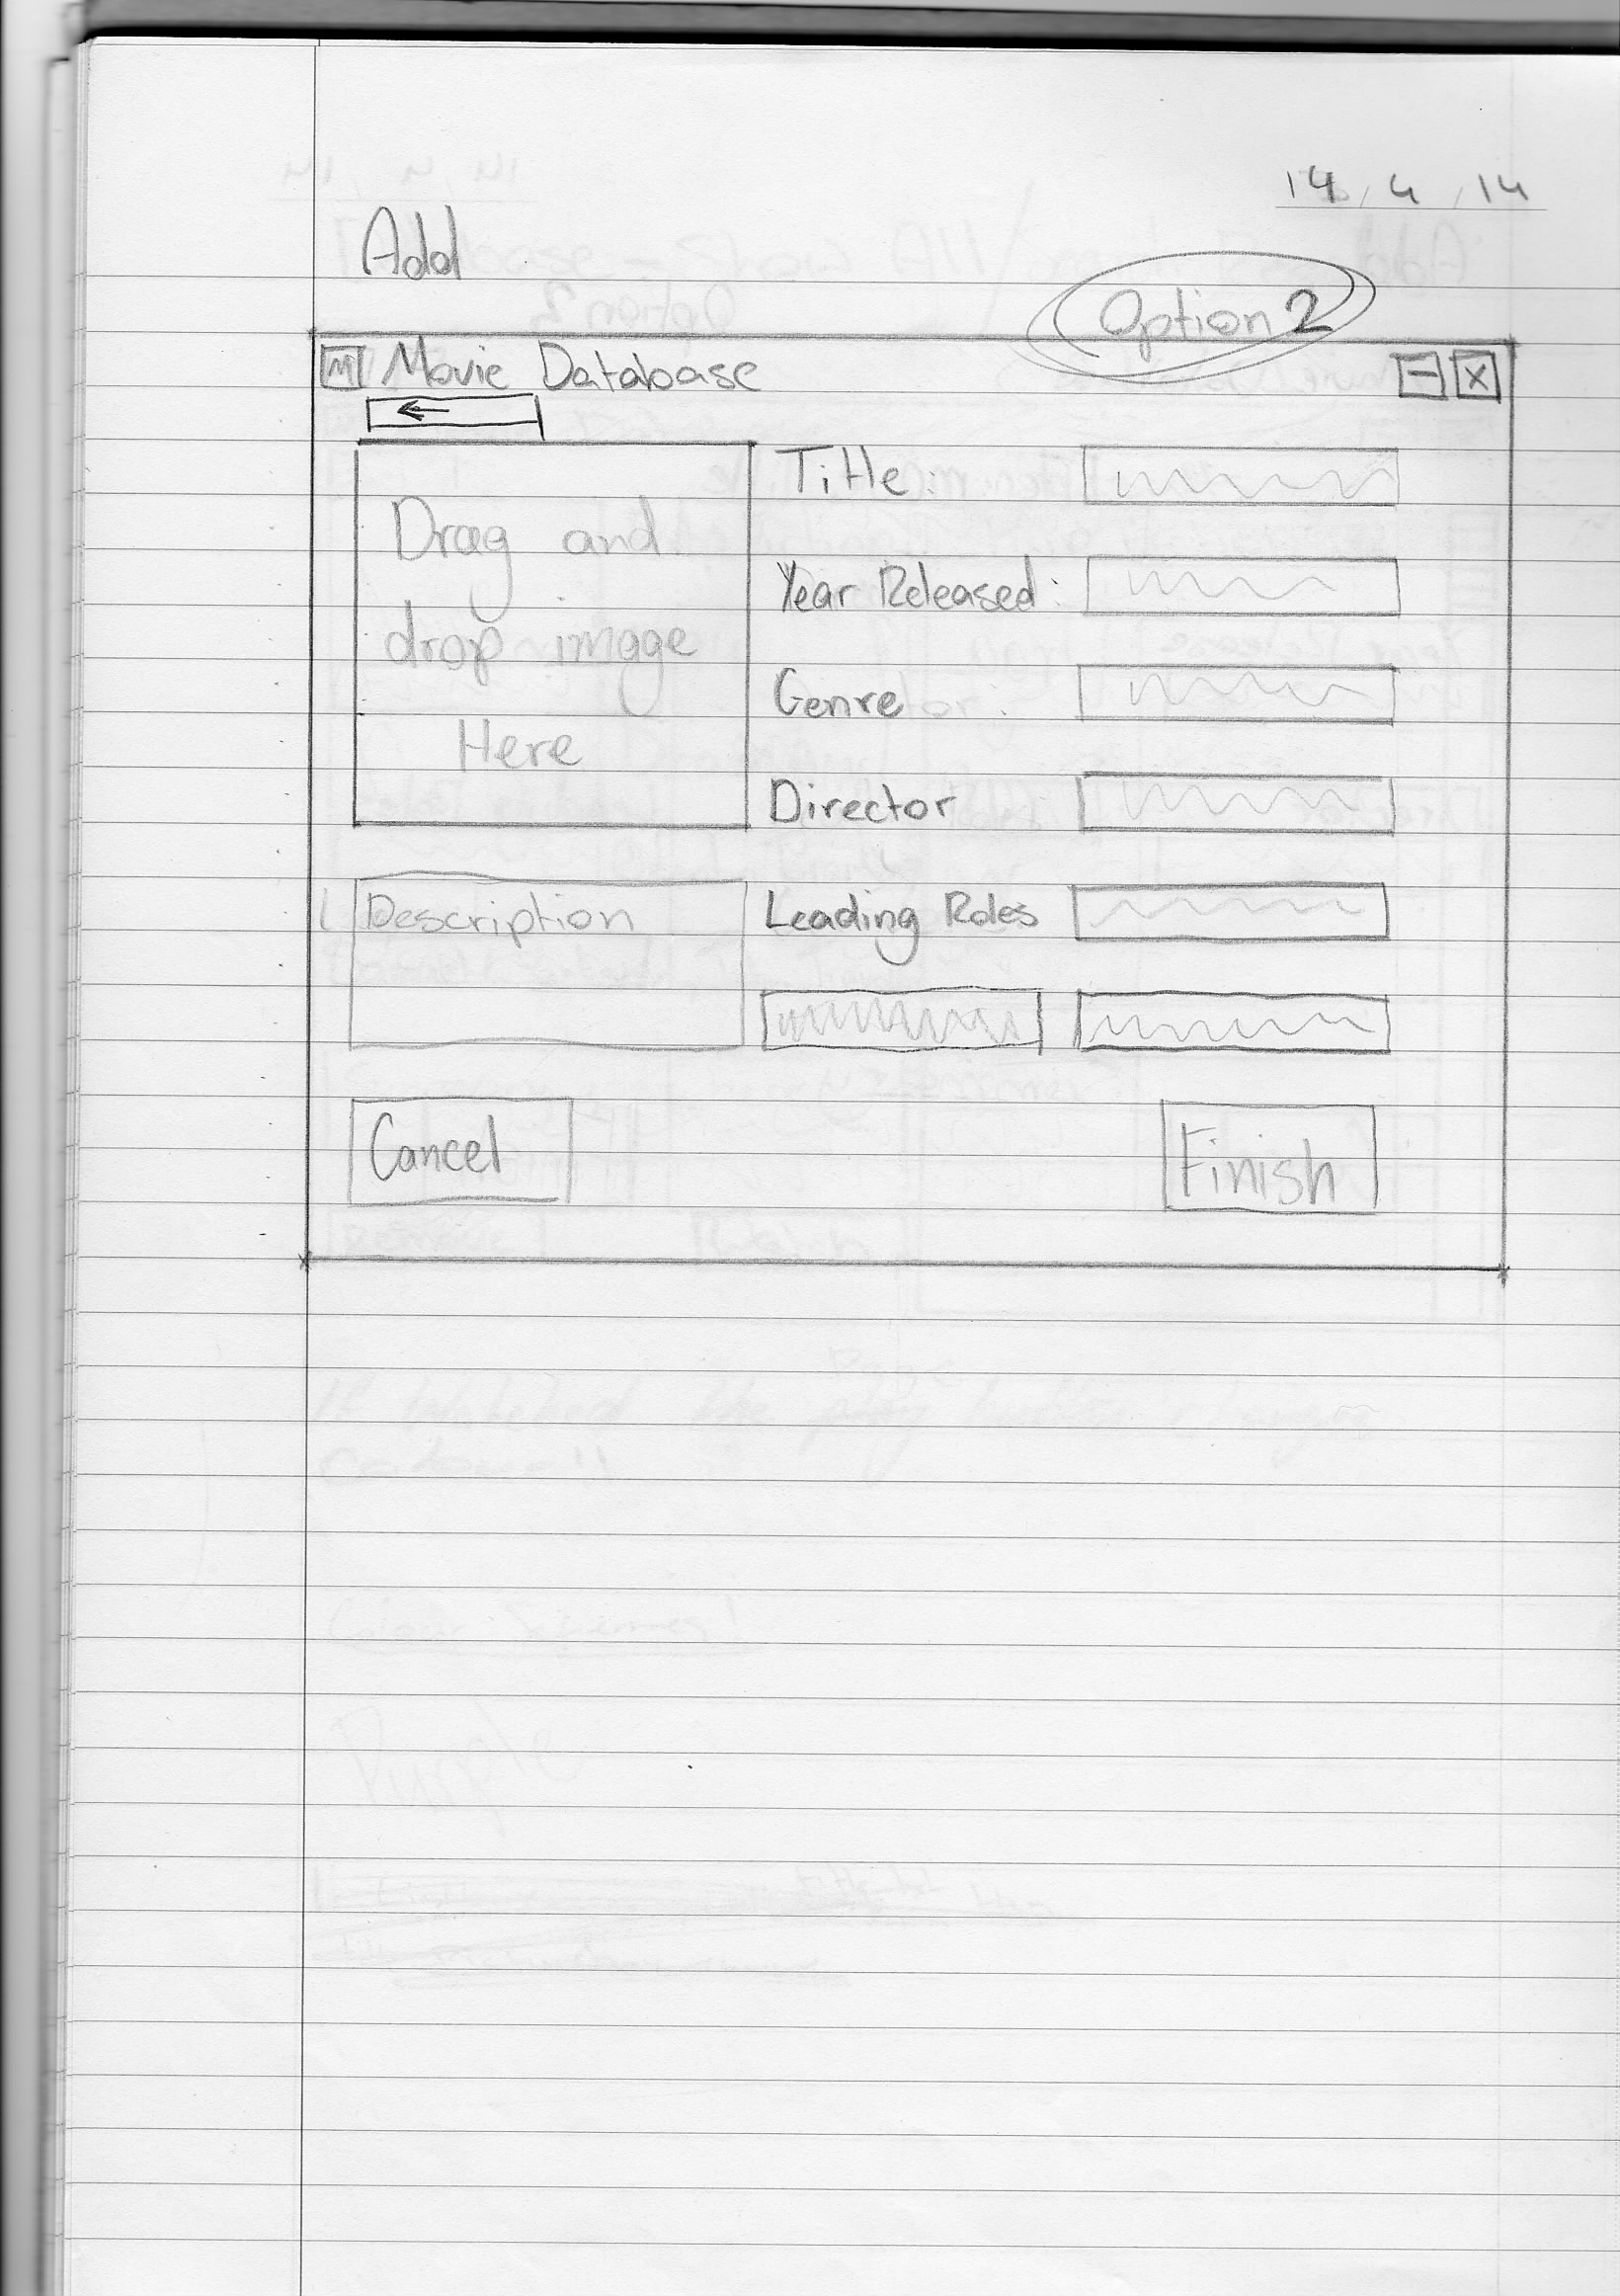 14, 4, 14
Add
Option 2
M Movie Database
←
Drag and
drop image
Here
Title:
Year Released:
Genre
Director
Description
Leading Roles
Cancel
Finish